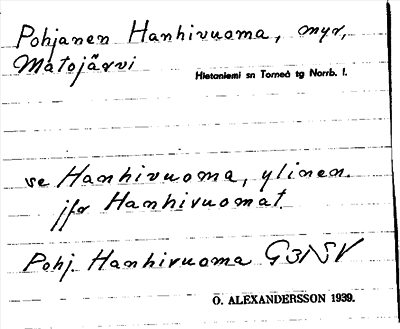 Pohjanen Hanhivuoma, myr,
Matojärvi
Hietaniemi sn Torneå tg Norrb. l.
se Hanhivuoma, ylinen.
jfr Hanhivuomat.
Pohj. Hanhivuoma G3NSV
O. ALEXANDERSSON 1939.